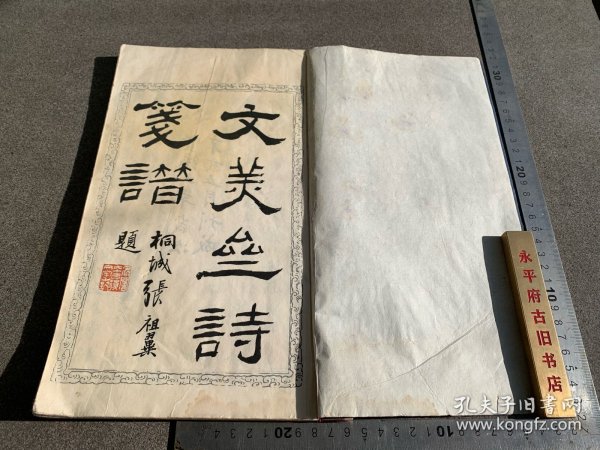 文美亝詩
箋譜
桐城張祖翼
題
永平府古旧书店
孔夫子旧书网
www.kongfz.com